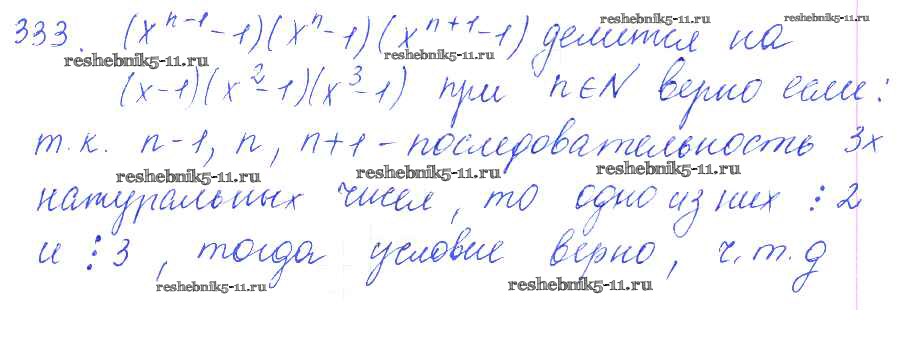 333. (x^{n-1}-1)(x^n-1)(x^{n+1}-1) делится на
(x-1)(x^2-1)(x^3-1) при n∈N верно если:
т.к. n-1, n, n+1 - последовательность 3х
натуральных чисел, то одно из них ⋮ 2
и ⋮ 3, тогда условие верно, ч.т.д
reshebnik5-11.ru
reshebnik5-11.ru
reshebnik5-11.ru
reshebnik5-11.ru
reshebnik5-11.ru
reshebnik5-11.ru
reshebnik5-11.ru
reshebnik5-11.ru
reshebnik5-11.ru